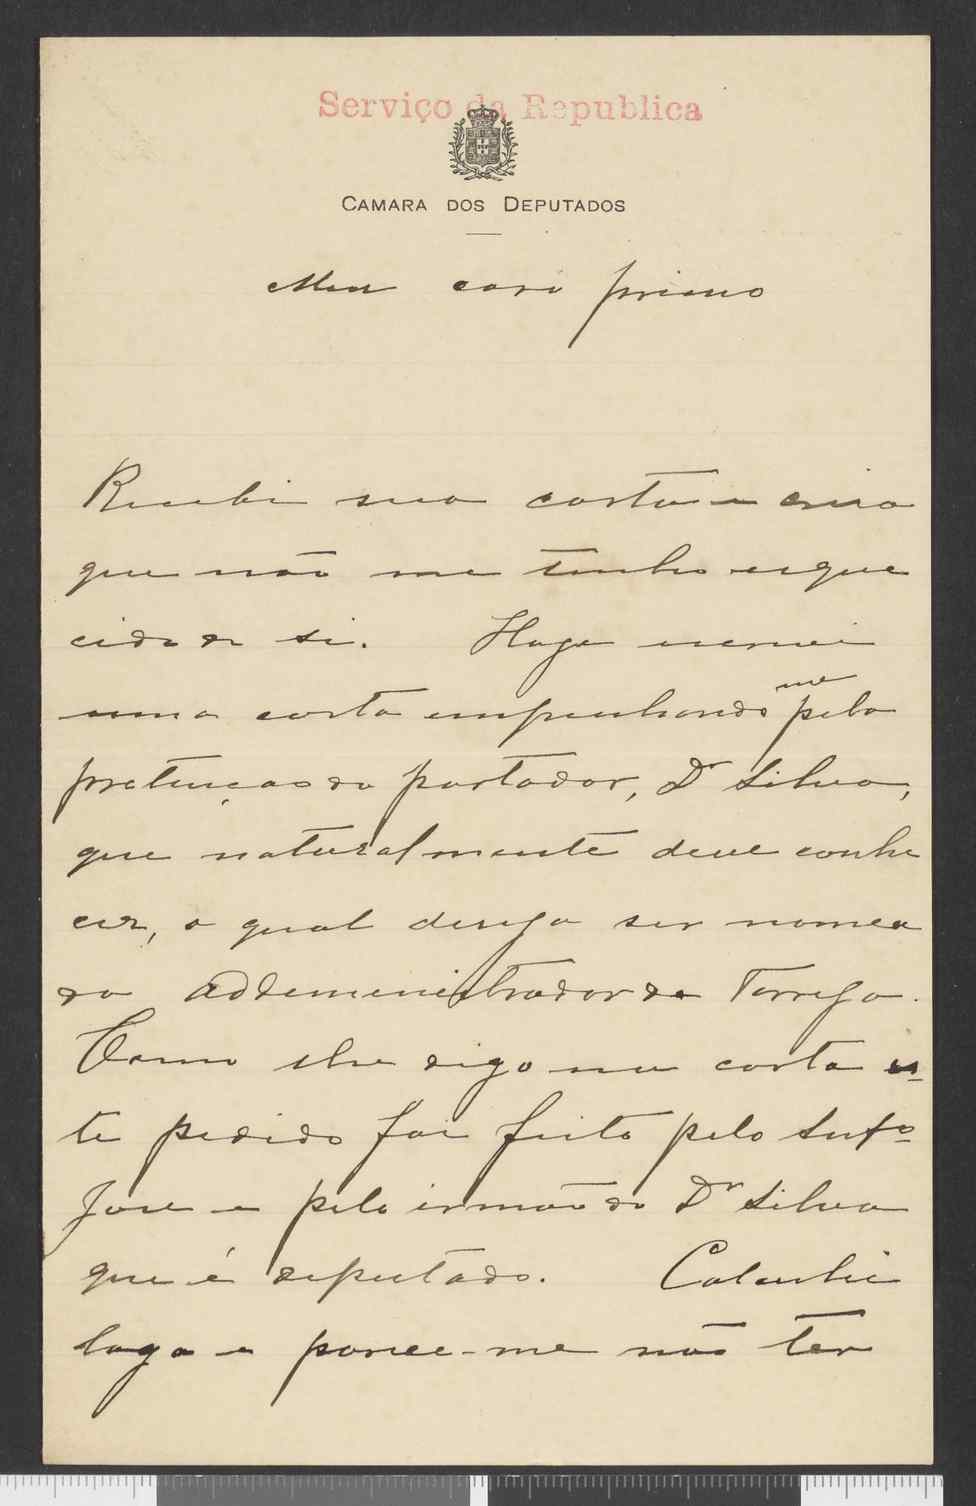 Serviço da Republica
CAMARA DOS DEPUTADOS
Meu caro primo
Recebi sua carta e creia
que não me tenho esque
cido de si. Hoje escrevi
uma carta empenhando me pela
pretenção do portador, Dr Silva,
que naturalmente deve conhe
cer, o qual deseja ser nomea
do addeministrador de Tarrefa.
Como lhe digo na carta es-
te pedido foi feito pelo
José e pelo irmão do Dr Silva
que é deputado. Calculei
logo e parece-me não ter